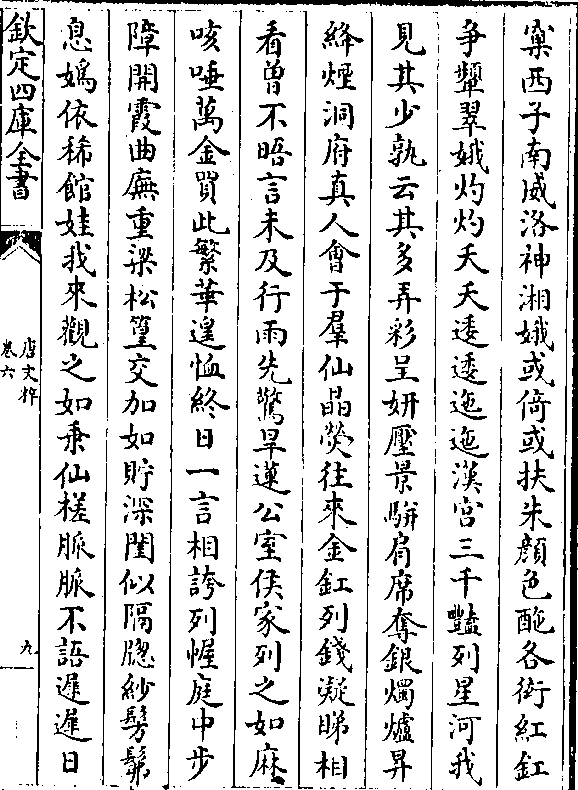 窠西子南威洛神湘娥或倚或扶朱顏色酡各衒紅釭
爭顰翠娥灼灼夭夭逶逶迤迤漢宫三千豔列星河我
見其少孰云其多弄彩呈妍壓景駢肩席奪銀燭爐昇
絳煙洞府真人會于羣仙晶熒往來金釭列錢凝睇相
看曾不晤言未及行雨先驚旱蓮公室侯家列之如麻
咳唾萬金買此繁華遑恤終日一言相誇列幄庭中步
障開霞曲廡重梁松篁交加如貯深閨似隔牕紗髣髴
息媯依稀館娃我來觀之如乗仙槎脈脈不語遲遲日
欽定四庫全書
唐文粹
卷六
九